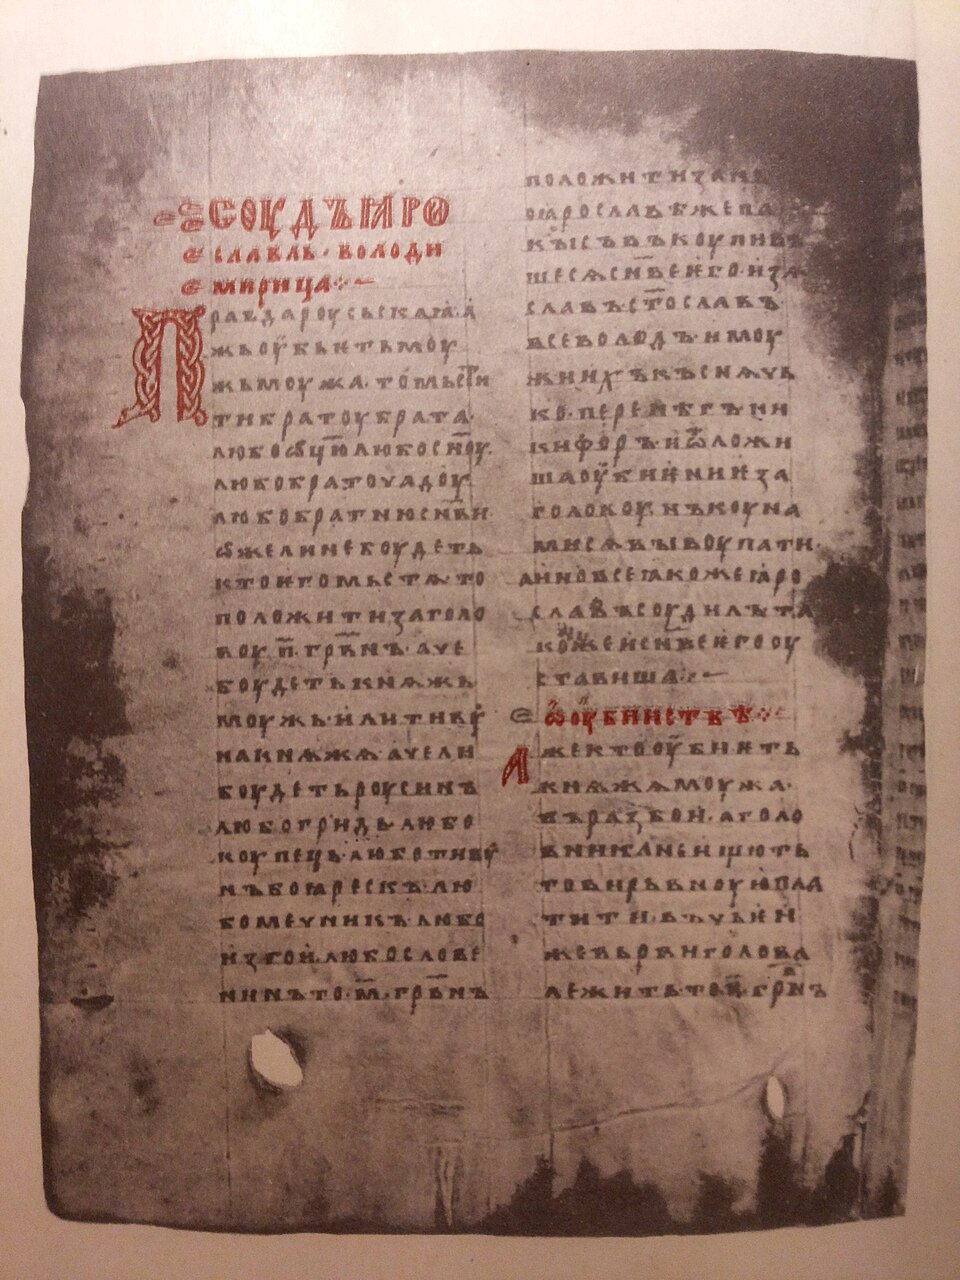 СОУДЪ ꙖРО
СЛАВЛЬ · ВОЛОДИ
МИРИЦА ⁘ —
ПРАВДА РОУСЬСКАꙖ · А
ЖЬ ОУБЬѤТЬ МОУ
ЖЬ МОУЖА · ТО МЬСТИ
ТИ БРАТОУ БРАТА ·
ЛЮБО ѾЦЮ ЛЮБО СН҃ОУ ·
ЛЮБО БРАТОУЧАДОУ
ЛЮБО БРАТНЮ СН҃ВИ ·
ѠЖЕ ЛИ НЕ БОУДЕТЬ
КТО ѤГО МЬСТѦ ТО
ПОЛОЖИТИ ЗА ГОЛО
ВОУ · П҃ · ГРВ҃НЪ · АЧЕ
БОУДЕТЬ КНѦЖЬ
МОУЖЬ · ИЛИ ТИВОУ
НА КНѦЖѦ · АЧЕ ЛИ
БОУДЕТЬ РОУСИНЪ
ЛЮБО ГРИДЬ · ЛЮБО
КОУПЕЦЬ · ЛЮБО ТИВОУ
НЪ БОꙖРЕСКЪ · ЛЮ
БО МЕЧНИКЪ · ЛЮБО
ИЗГОИ · ЛЮБО СЛОВЕ
НИНЪ ТО · М҃ · ГРВ҃НЪ
ПОЛОЖИТИ ЗА НЬ
ПО ꙖРОСЛАВѢ ЖЕ ПА
КЫ СЪВЪКОУПИВЪ
ШЕСѦ СН҃ВЕ ѤГО · ИЗѦ
СЛАВЪ СТ҃ОСЛАВЪ ·
ВСЕВОЛОДЪ · И МОУ
ЖИ ИХЪ КЪСНѦЧЬ
КО · ПЕРЕНѢГЪ НИ
КИФОРЪ · И ѾЛОЖИ
ША ОУБИѤНИѤ ЗА
ГОЛОВОУ · НЪ КОУНА
МИ СѦ ВЫКОУПАТИ ·
А ИНО ВСЕ ꙖКОЖЕ ꙖРО
СЛАВЪ СОУДИЛЪ ТА
КОЖЕ И СН҃ВЕ ѤГО ОУ
СТАВИША ⁘ —
Ѡ ОУБИИСТВѢ ⁘
АЖЕ КТО ОУБИѤТЬ
КНѦЖѦ МОУЖА ·
ВЪ РАЗБОИ · А ГОЛО
ВНИКА НЕ ИЩЮТЬ
ТО ВИРЬВНОУЮ ПЛА
ТИТИ · ВЪ ЧЬѤИ
ЖЕ ВЬРВИ ГОЛОВА
ЛЕЖИТЬ ТО П҃ · ГРВ҃НЪ